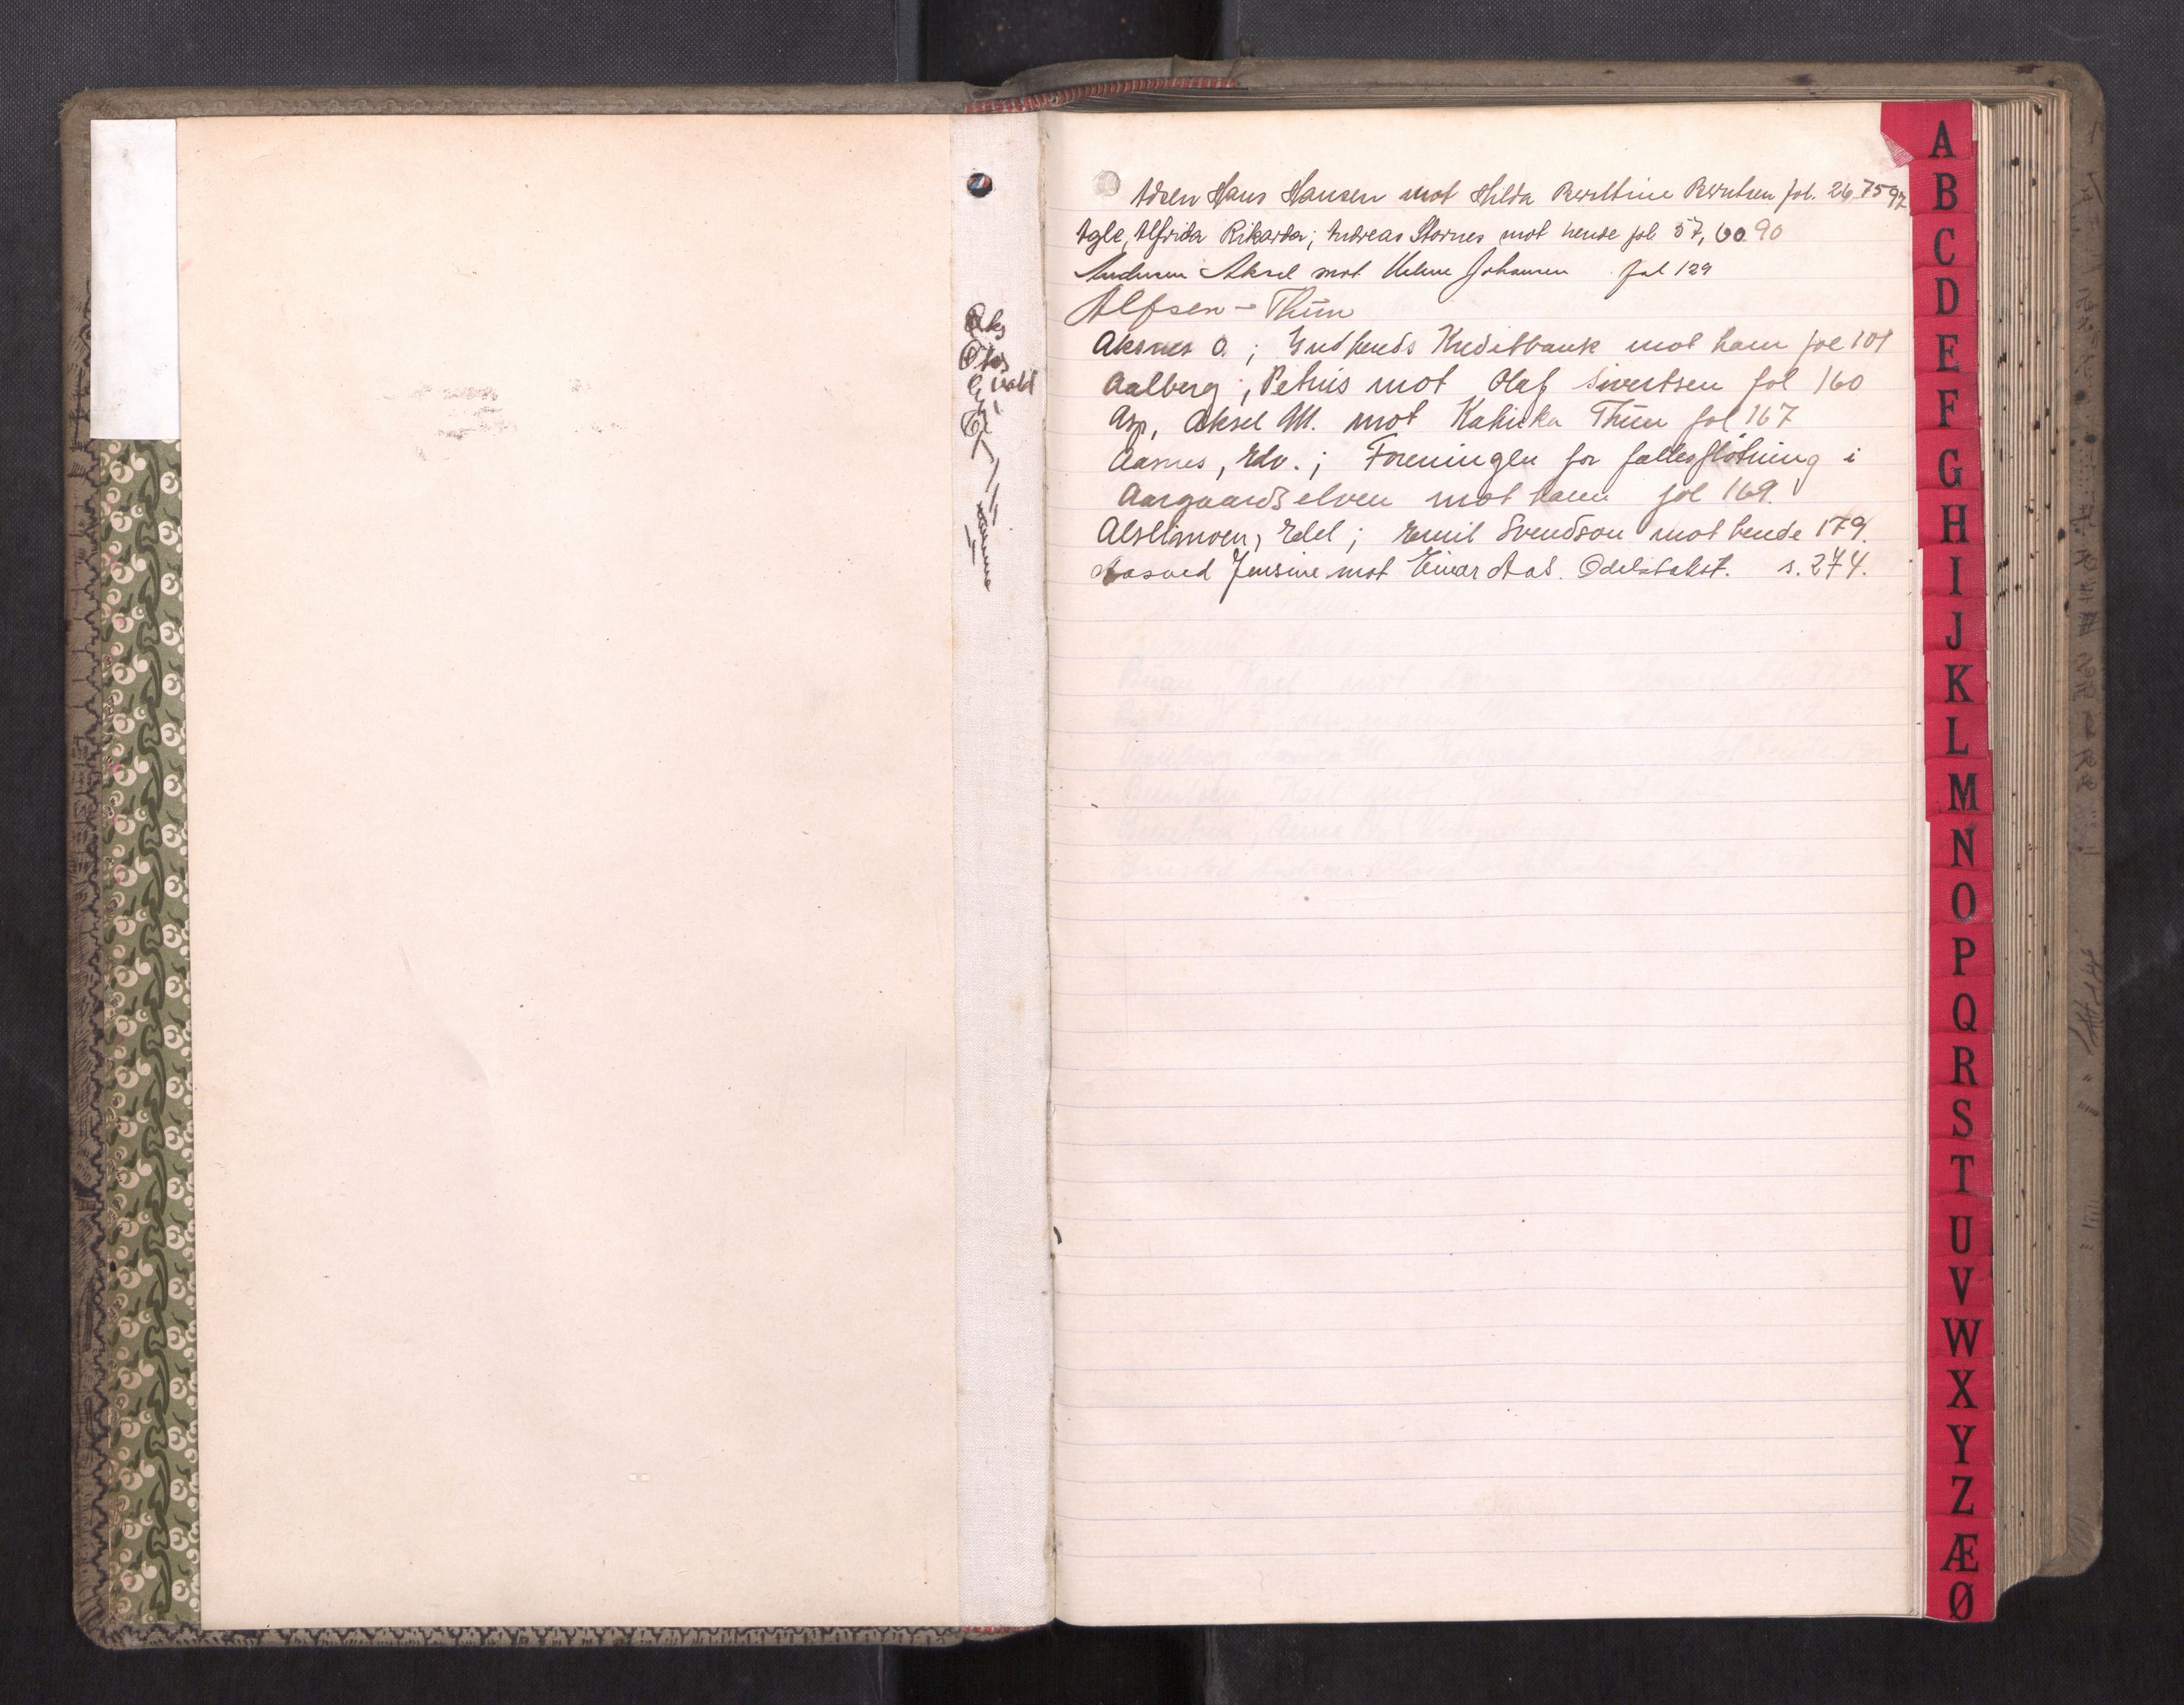 Adsen Hans Hansen mot Hilda Berntine Berntsen fol. 26 75 92
Agle, Alfrida Rikarda; Andreas Stornes mot hende fol 57, 60 90
Andersen Aksel mot Johansen fol 129
Alfsen - Thun
Aksnes O.; Kreditbank mot ham fol 101
Aalberg; Petrus mot Olaf Sivertsen fol 160
Asp, Aksel M. mot Katinka Thun fol 167
Aasnes, Edv.; Foreningen for fellesfløtning i
Aargaardselven mot ham fol 169.
Alstinmoen, Edel; Emil Svendson mot hende 179.
Aasved Jensine mot Einar Aas. Odelstakst. s. 274.
A
B
C
D
E
F
G
H
I
J
K
L
M
N
O
P
Q
R
S
T
U
V
W
X
Y
Z
Æ
Ø